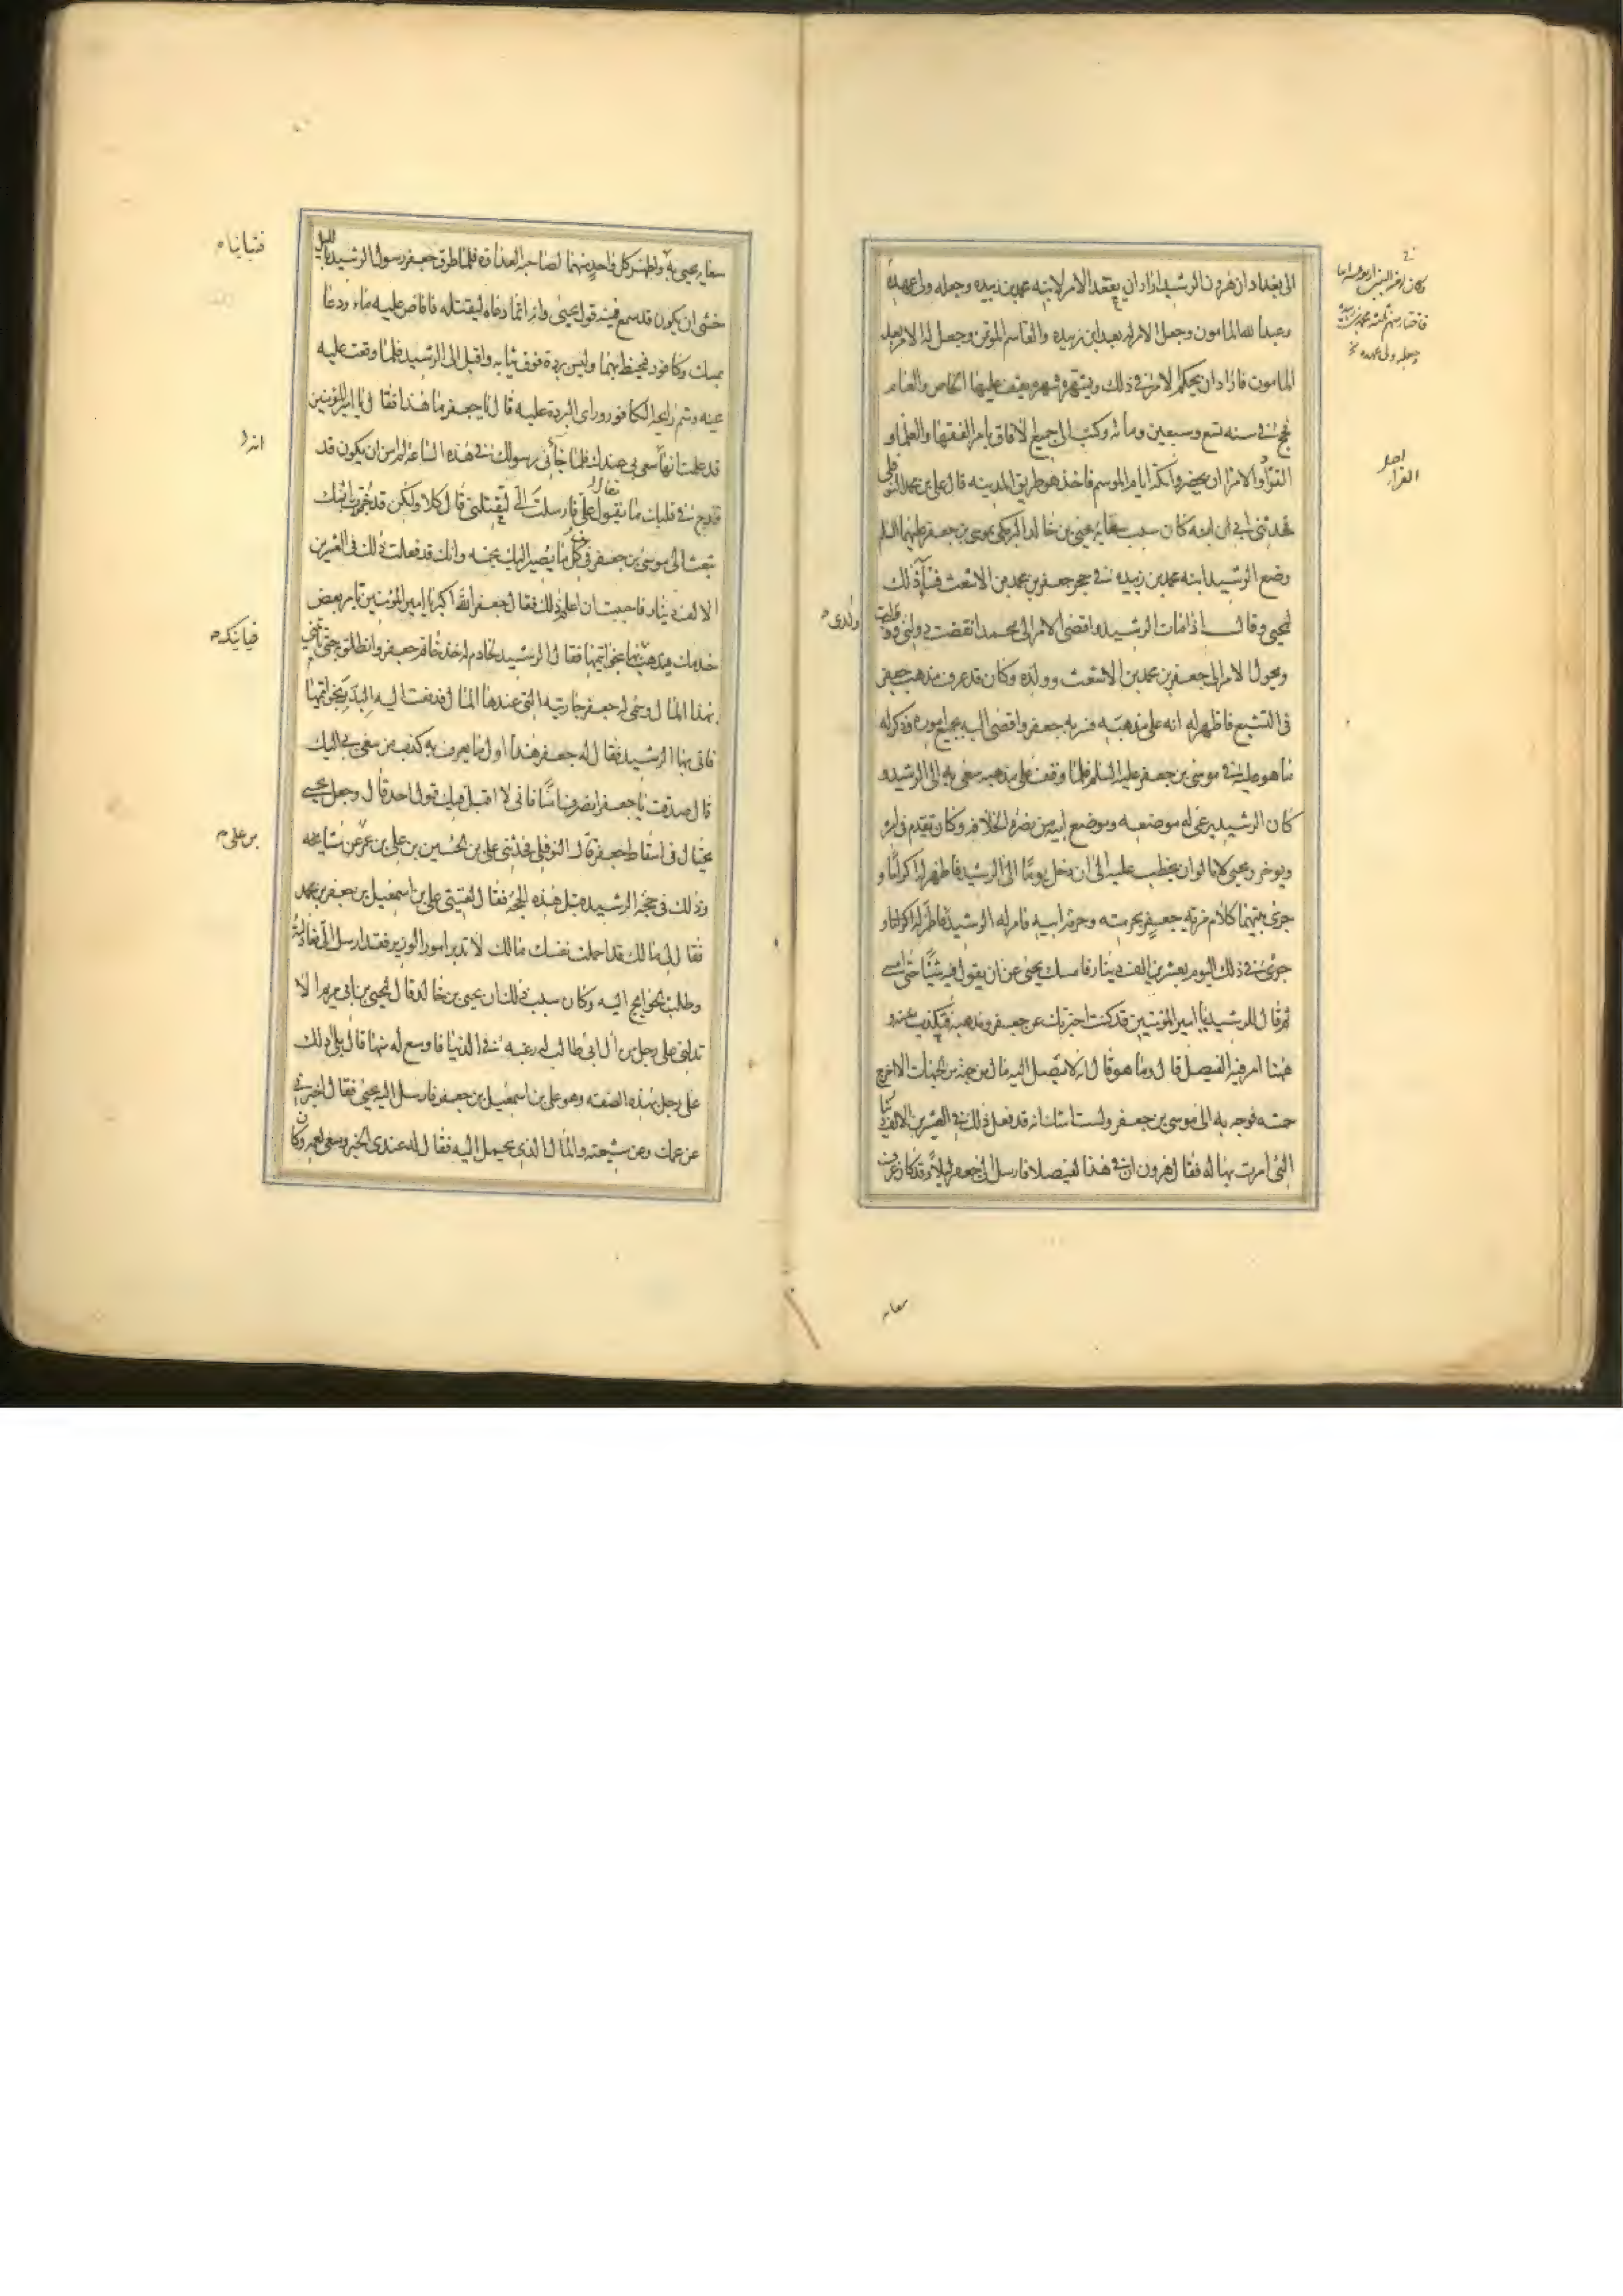 الى بغداد ان هرون الرشيد اراد ان يعقد الامر لابنه محمد بن زبيده وجعله ولى عهده
وعبدا لله المامون وجعل الامر له بعد ابن زبيده والقاسم المؤتمن وجعل له الامر بعد
المامون فاراد ان يحكم الامر فى ذلك ويشهره شهره يقف عليها الخاص والعام
فحج فى سنه تسع وسبعين ومائه وكتب الى جميع الافاق يامر الفقها والعلما و
القرّاء والامرا ان يحضروا مكة ايام الموسم فاخذ هو طريق المدينه قال على بن محمد النوفلى
فحدثنى ابى انه كان سبب سعاية يحيى بن خالد البرمكى بموسى بن جعفر عليهما السلم
وضع الرشيد ابنه محمد بن زبيده فى حجر جعفر بن محمد بن الاشعث فساء ذلك
يحيى وقال اذا مات الرشيد وافضى الامر الى محمد انقضت دولتى ودولة
وتحول الامر الى جعفر بن محمد بن الاشعث وولده وكان قد عرف مذهب جعفر
فى التشيع فاظهر له انه على مذهبه فسر به جعفر وافضى اليه بجميع اموره وذكر له
ما هو عليه فى موسى بن جعفر عليه السلم فلما وقف على مذهبه سعى به الى الرشيد و
كان الرشيد يرعى له موضعه وموضع ابيه من نصرة الخلافه وكان يقدم فى امره
ويوخر ويحيى لا يالوان يخطب عليه الى ان دخل يوما الى الرشيد فاظهر له اكراما و
جرى بينهما كلام مزية جعفر بحرمته وحرمة ابيه فامر له الرشيد فاظهر له اكراما و
جرى فى ذلك اليوم بعشرين الف دينار فامسك يحيى عن ان يقول فيه شيئا حتى امسى
ثم قال للرشيد يا امير المؤمنين قد كنت اخبرتك عن جعفر ومذهبه فتكذب عنه و
ههنا امر فيه الفيصل قال وما هو قال انه لا يصل اليه مال من جهة من الجهات الا اخرج
خمسه فوجه به الى موسى بن جعفر ولست اشك انه قد فعل ذلك فى العشرين الالف دينار
التى امرت بها له فقال هرون ان فى هذا لفيصلا فارسل الى جعفر ليلا وقد كان عرف
فاختار منهم ابنه محمد بن زبيده
وجعله ولى عهده
القراء
ولدى
سعايه
سعاية يحيى به واظهر كل واحد منهما لصاحبه العداوه فلما طرق جعفر رسول الرشيد بالليل
خشى ان يكون قد سمع فيه قول يحيى وانه انما دعاه ليقتله فافاض عليه ماء ودعا
بمسك وكافور فتحنط بهما ولبس بردة فوق ثيابه واقبل الى الرشيد فلما وقعت عليه
عينه وشم رايحة الكافور وراى البردة عليه قال يا جعفر ما هذا فقال يا امير المؤمنين
قد علمت انه سعى بى عندك فلما جاءنى رسولك فى هذه الساعة لم امن ان يكون قد
قدح فى قلبك ما يقول على فارسلت الى لتقتلنى فقال قال كلا ولكن قد خبرت بانك
تبعث الى موسى بن جعفر فى كل ما يصير اليك بخمسه وانك قد فعلت ذلك فى العشرين
الالف دينار فاحببت ان اعلم ذلك فقال جعفر الله اكبر يا امير المؤمنين تامر بعض
خدمك يذهب فياتيك بها بخواتيمها فقال الرشيد لخادم له خذ خاتم جعفر وانطلق به حتى تاتينى
بهذا المال وسمى له جعفر جاريته التى عندها المال فدفعت اليه البدر بخواتيمها
فاتى بها الرشيد فقال له جعفر هذا اول ما يعرف به كذب من سعى بى اليك
قال صدقت يا جعفر انصرف امنا فانى لا اقبل فيك قول احد قال وجعل يحيى
يحتال فى اسقاط جعفر قال النوفلى فحدثنى على بن الحسين بن على بن عمر عن مشايخه
وذلك فى حجة الرشيد قبل هذه الحجة فقال لقينى على بن اسمعيل بن جعفر بن محمد
فقال لى مالك قد احملت نفسك مالك لا تدبر امور الوزير فقد ارسل الى فعادلته
وطلبت الحوايج اليه وكان سبب ذلك ان يحيى بن خالد قال ليحيى بن ابى مريم الا
تدلنى على رجل من ال ابى طالب له رغبه فى الدنيا فاوسع له منها قال بلى ادلك
على رجل بهذه الصفه وهو على بن اسمعيل بن جعفر فارسل اليه يحيى فقال اخبرنى
عن عمك وعن شيعته والمال الذى يحمل اليه فقال له عندى الخبر وسعى بعمه وكان
فياتيك
بن على